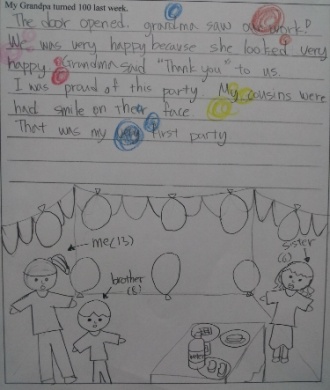 My Grandpa turned 100 last week.
The door opened. grandma saw our work!
We was very happy because she looked very
happy. Grandma said "Thank you" to us.
I was proud of this party. My cousins were
had smile on their face.
That was my first party
me(13)
brother
(8)
sister
(6)